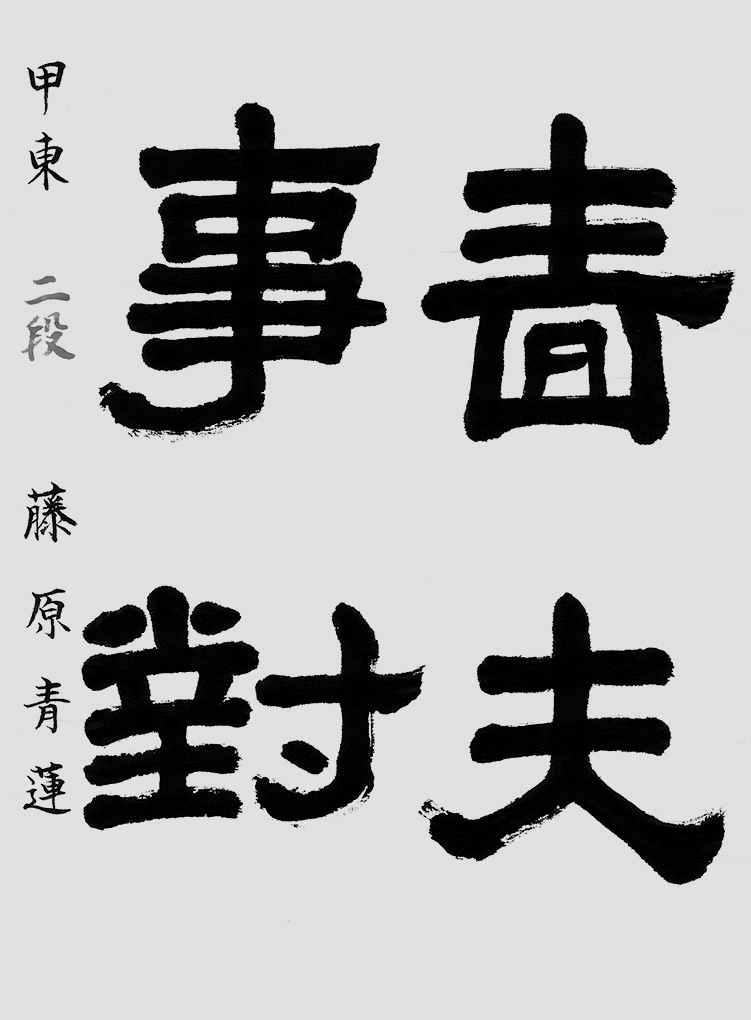 青夫
事對
甲東 二段 藤原青蓮